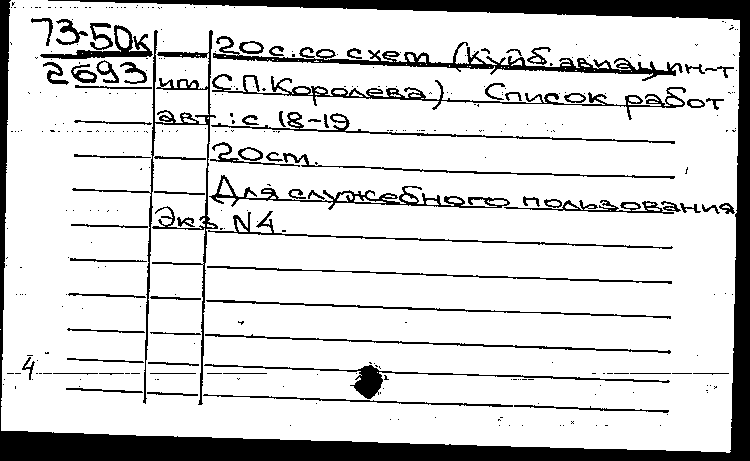 73-50к
2693
20 с. со схем (Куйб. авиац. ин-т
им. С.П.Королева). Список работ
авт.: с. 18-19.
20ст.
Для служебного пользования
Экз. N4.
4